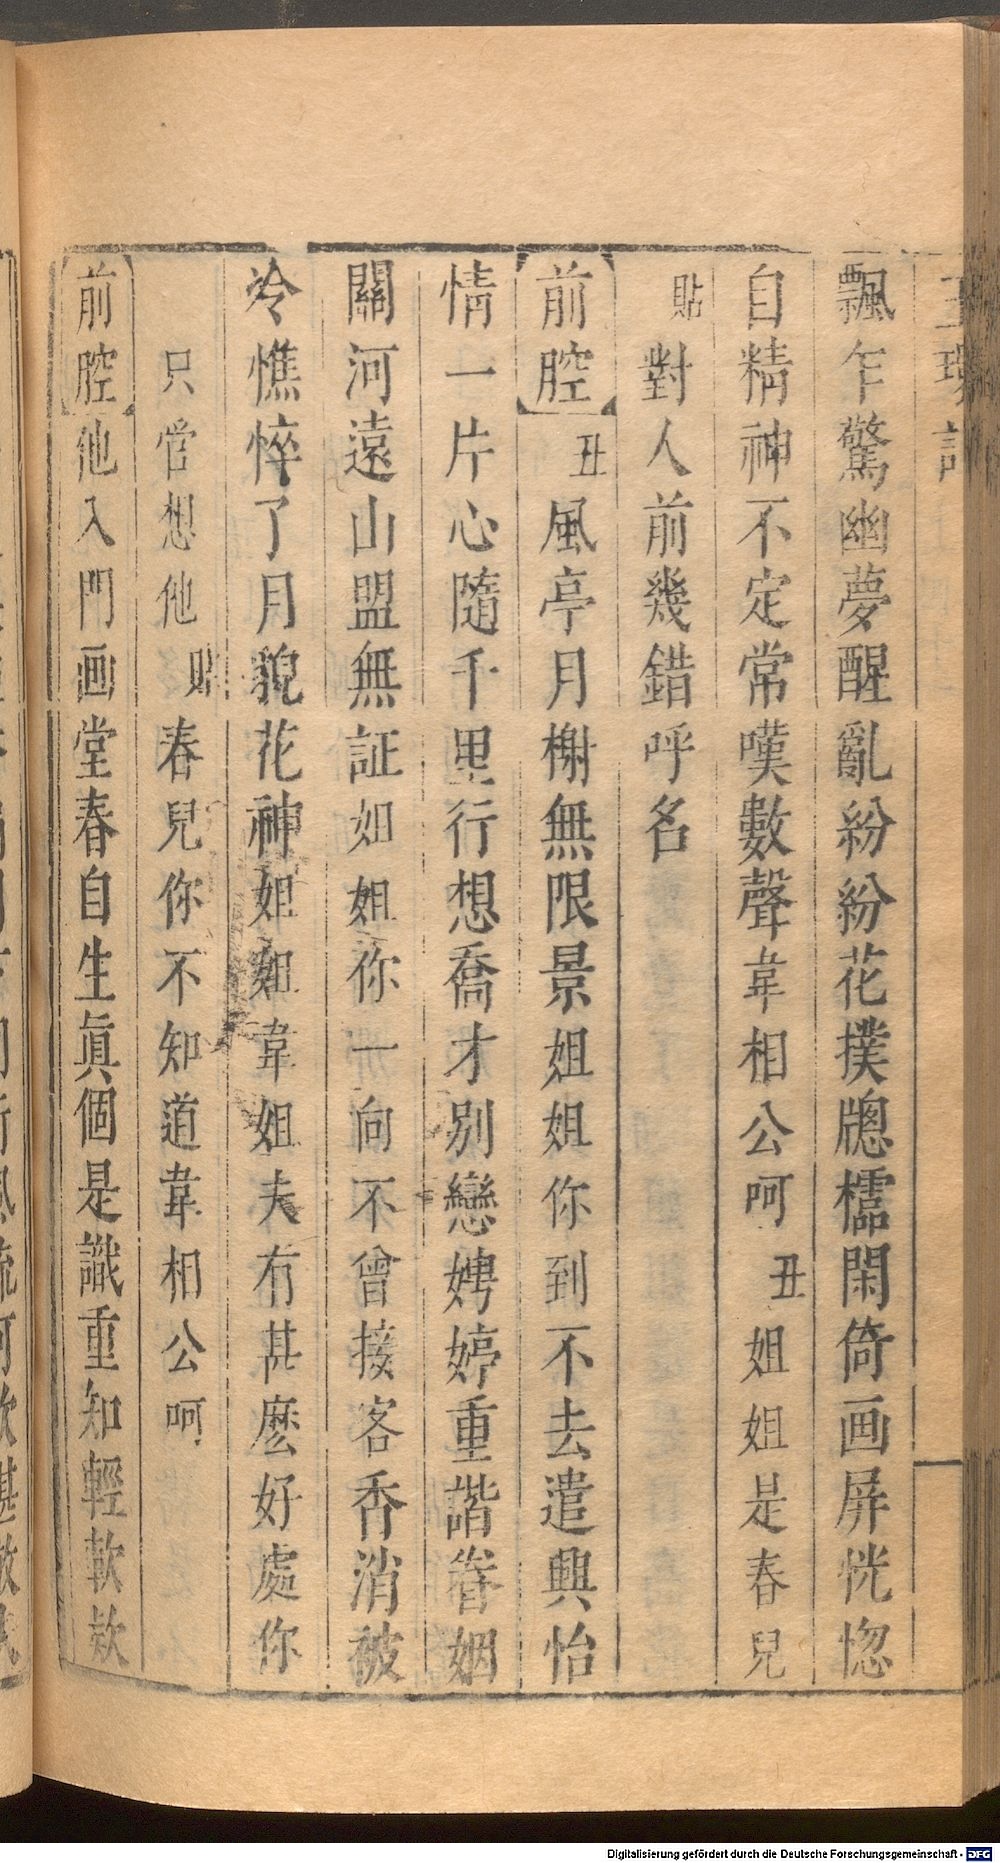 玉環記
飄乍驚幽夢醒亂紛紛花撲牕櫺閑倚画屏恍惚
自精神不定常嘆數聲韋相公呵丑姐姐是春兒
貼對人前幾錯呼名
前腔丑風亭月榭無限景姐姐你到不去遣興怡
情一片心隨千里行想喬才別戀娉婷重諧眷姻
關河遠山盟無証如姐你一向不曾接客香消被
冷憔悴了月貌花神姐如韋姐夫有甚麽好處你
只管想他貼春兒你不知道韋相公呵
前腔他入門画堂春自生眞個是識重知輕軟欵
Digitalisierung gefördert durch die Deutsche Forschungsgemeinschaft - DFG